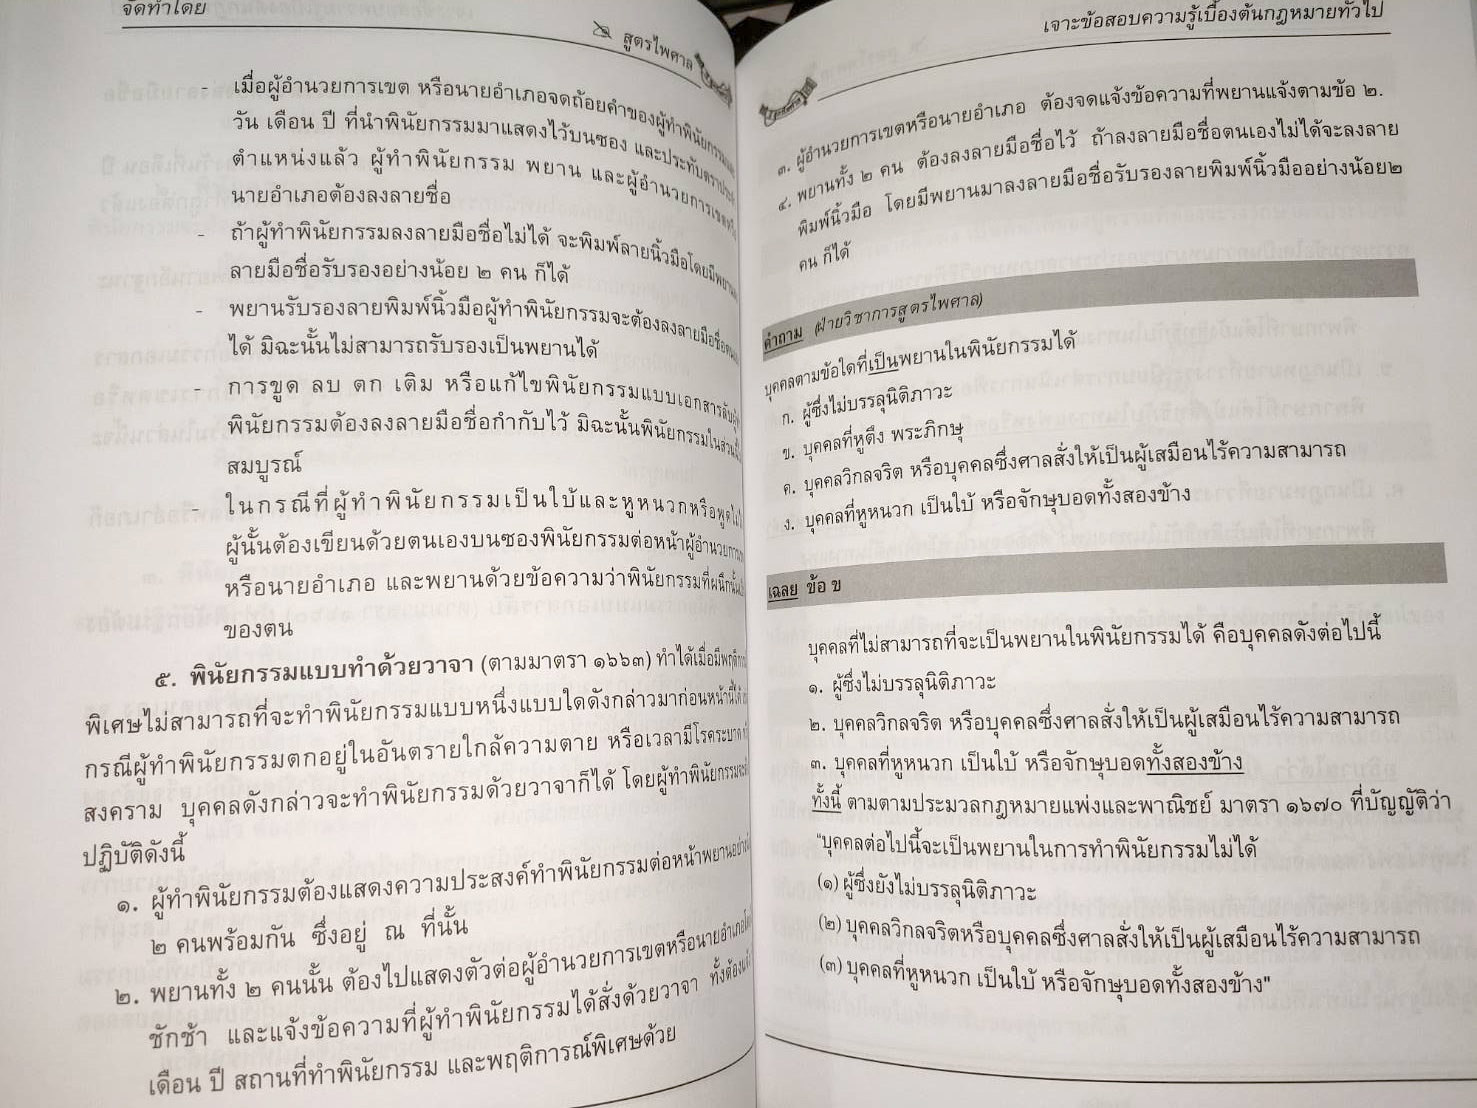 จัดทำโดย
สูตรไพศาล
- เมื่อผู้อำนวยการเขต หรือนายอำเภอจดถ้อยคำของผู้ทำพินัยกรรมและ
วัน เดือน ปี ที่นำพินัยกรรมมาแสดงไว้บนซอง และประทับตราประจำ
ตำแหน่งแล้ว ผู้ทำพินัยกรรม พยาน และผู้อำนวยการเขตหรือ
นายอำเภอต้องลงลายชื่อ
- ถ้าผู้ทำพินัยกรรมลงลายมือชื่อไม่ได้ จะพิมพ์ลายนิ้วมือโดยมีพยาน
ลายมือชื่อรับรองอย่างน้อย ๒ คน ก็ได้
- พยานรับรองลายพิมพ์นิ้วมือผู้ทำพินัยกรรมจะต้องลงลายมือชื่อ
ได้ มิฉะนั้นไม่สามารถรับรองเป็นพยานได้
- การขูด ลบ ตก เติม หรือแก้ไขพินัยกรรมแบบเอกสารลับ
พินัยกรรมต้องลงลายมือชื่อกำกับไว้ มิฉะนั้นพินัยกรรมในส่วนนั้น
สมบูรณ์
- ในกรณีที่ผู้ทำพินัยกรรมเป็นใบ้และหูหนวกหรือพูดไม่ได้
ผู้นั้นต้องเขียนด้วยตนเองบนซองพินัยกรรมต่อหน้าผู้อำนวยการ
หรือนายอำเภอ และพยานด้วยข้อความว่าพินัยกรรมที่ผนึกนั้น
ของตน
๕. พินัยกรรมแบบทำด้วยวาจา (ตามมาตรา ๑๖๖๓) ทำได้เมื่อมีพฤติการณ์
พิเศษไม่สามารถที่จะทำพินัยกรรมแบบหนึ่งแบบใดดังกล่าวมาก่อนหน้านี้ได้
กรณีผู้ทำพินัยกรรมตกอยู่ในอันตรายใกล้ความตาย หรือเวลามีโรคระบาด
สงคราม บุคคลดังกล่าวจะทำพินัยกรรมด้วยวาจาก็ได้ โดยผู้ทำพินัยกรรม
ปฏิบัติดังนี้
๑. ผู้ทำพินัยกรรมต้องแสดงความประสงค์ทำพินัยกรรมต่อหน้าพยานอย่าง
๒ คนพร้อมกัน ซึ่งอยู่ ณ ที่นั้น
๒. พยานทั้ง ๒ คนนั้น ต้องไปแสดงตัวต่อผู้อำนวยการเขตหรือนายอำเภอ
ชักช้า และแจ้งข้อความที่ผู้ทำพินัยกรรมได้สั่งด้วยวาจา ทั้งต้อง
เดือน ปี สถานที่ทำพินัยกรรม และพฤติการณ์พิเศษด้วย
เจาะข้อสอบความรู้เบื้องต้นกฎหมายทั่วไป
๓. ผู้อำนวยการเขตหรือนายอำเภอ ต้องจดแจ้งข้อความที่พยานแจ้งตามข้อ ๒.
๔. พยานทั้ง ๒ คน ต้องลงลายมือชื่อไว้ ถ้าลงลายมือชื่อตนเองไม่ได้จะลงลาย
พิมพ์นิ้วมือ โดยมีพยานมาลงลายมือชื่อรับรองลายพิมพ์นิ้วมืออย่างน้อย๒
คน ก็ได้
คำถาม (ฝ่ายวิชาการสูตรไพศาล)
บุคคลตามข้อใดที่เป็นพยานในพินัยกรรมได้
ก. ผู้ซึ่งไม่บรรลุนิติภาวะ
ข. บุคคลที่หูตึง พระภิกษุ
ค. บุคคลวิกลจริต หรือบุคคลซึ่งศาลสั่งให้เป็นผู้เสมือนไร้ความสามารถ
ง. บุคคลที่หูหนวก เป็นใบ้ หรือจักษุบอดทั้งสองข้าง
เฉลย ข้อ ข
บุคคลที่ไม่สามารถที่จะเป็นพยานในพินัยกรรมได้ คือบุคคลดังต่อไปนี้
๑. ผู้ซึ่งไม่บรรลุนิติภาวะ
๒. บุคคลวิกลจริต หรือบุคคลซึ่งศาลสั่งให้เป็นผู้เสมือนไร้ความสามารถ
๓. บุคคลที่หูหนวก เป็นใบ้ หรือจักษุบอดทั้งสองข้าง
ทั้งนี้ ตามตามประมวลกฎหมายแพ่งและพาณิชย์ มาตรา ๑๖๗๐ ที่บัญญัติว่า
"บุคคลต่อไปนี้จะเป็นพยานในการทำพินัยกรรมไม่ได้
(๑) ผู้ซึ่งยังไม่บรรลุนิติภาวะ
(๒) บุคคลวิกลจริตหรือบุคคลซึ่งศาลสั่งให้เป็นผู้เสมือนไร้ความสามารถ
(๓) บุคคลที่หูหนวก เป็นใบ้ หรือจักษุบอดทั้งสองข้าง"